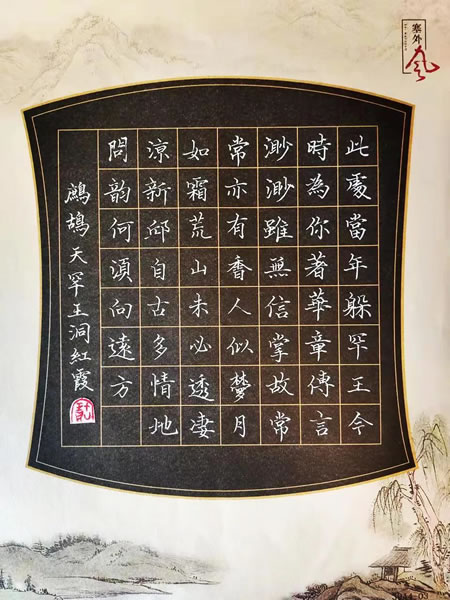 塞外
風
此處當年躲罕王今
時為你著華章傳言
渺渺雖無信掌故常
常亦有香人似夢月
如霜荒山未必透淒
涼新邱自古多情地
問韵何須向遠方
鷓鴣天 罕王洞紅霞